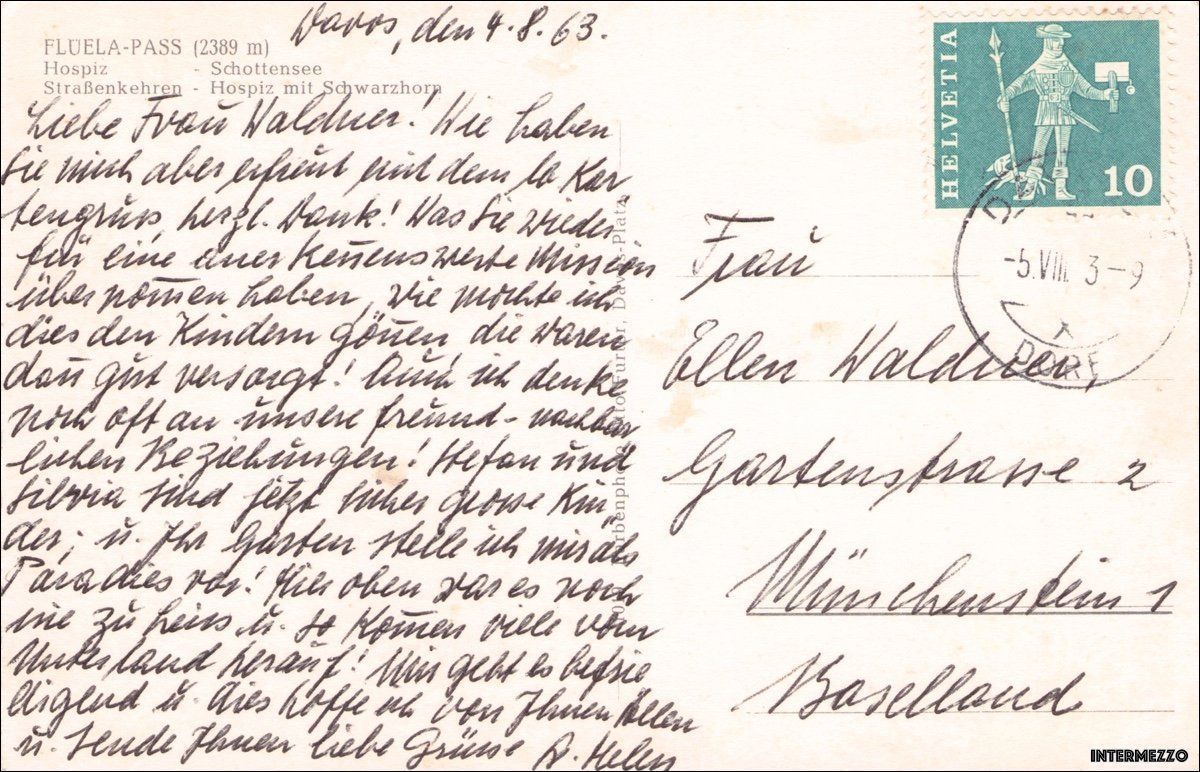 Davos, den 4. 8. 63.
FLÜELA-PASS (2389 m)
Hospiz - Schottensee
Straßenkehren - Hospiz mit Schwarzhorn
Liebe Frau Waldner! Wie haben
Sie mich aber erfreut mit dem lb Kar
tengruss, herzl. Dank! Was Sie wieder
für eine anerkennenswerte Mission
übernommen haben, wie möchte ich
dies den Kindern gönnen die wären
dann gut versorgt! Auch ich denke
noch oft an unsere freund-nachbar
lichen Beziehungen! Stefan und
Silvia sind jetzt sicher grosse Kin
der; u. Ihr Garten stelle ich mir als
Paradies vor! Hier oben war es noch
nie zu heiss u. so kommen viele vom
Unterland herauf! Mir geht es befrie
digend u. dies hoffe ich von Ihnen Allen
u. sende Ihnen liebe Grüsse A. Helen
Davos-Platz
HELVETIA
10
-5.VIII 3-9
DORF
Frau
Ellen Waldner,
Gartenstrasse 2
Münchenstein 1
Baselland
INTERMEZZO